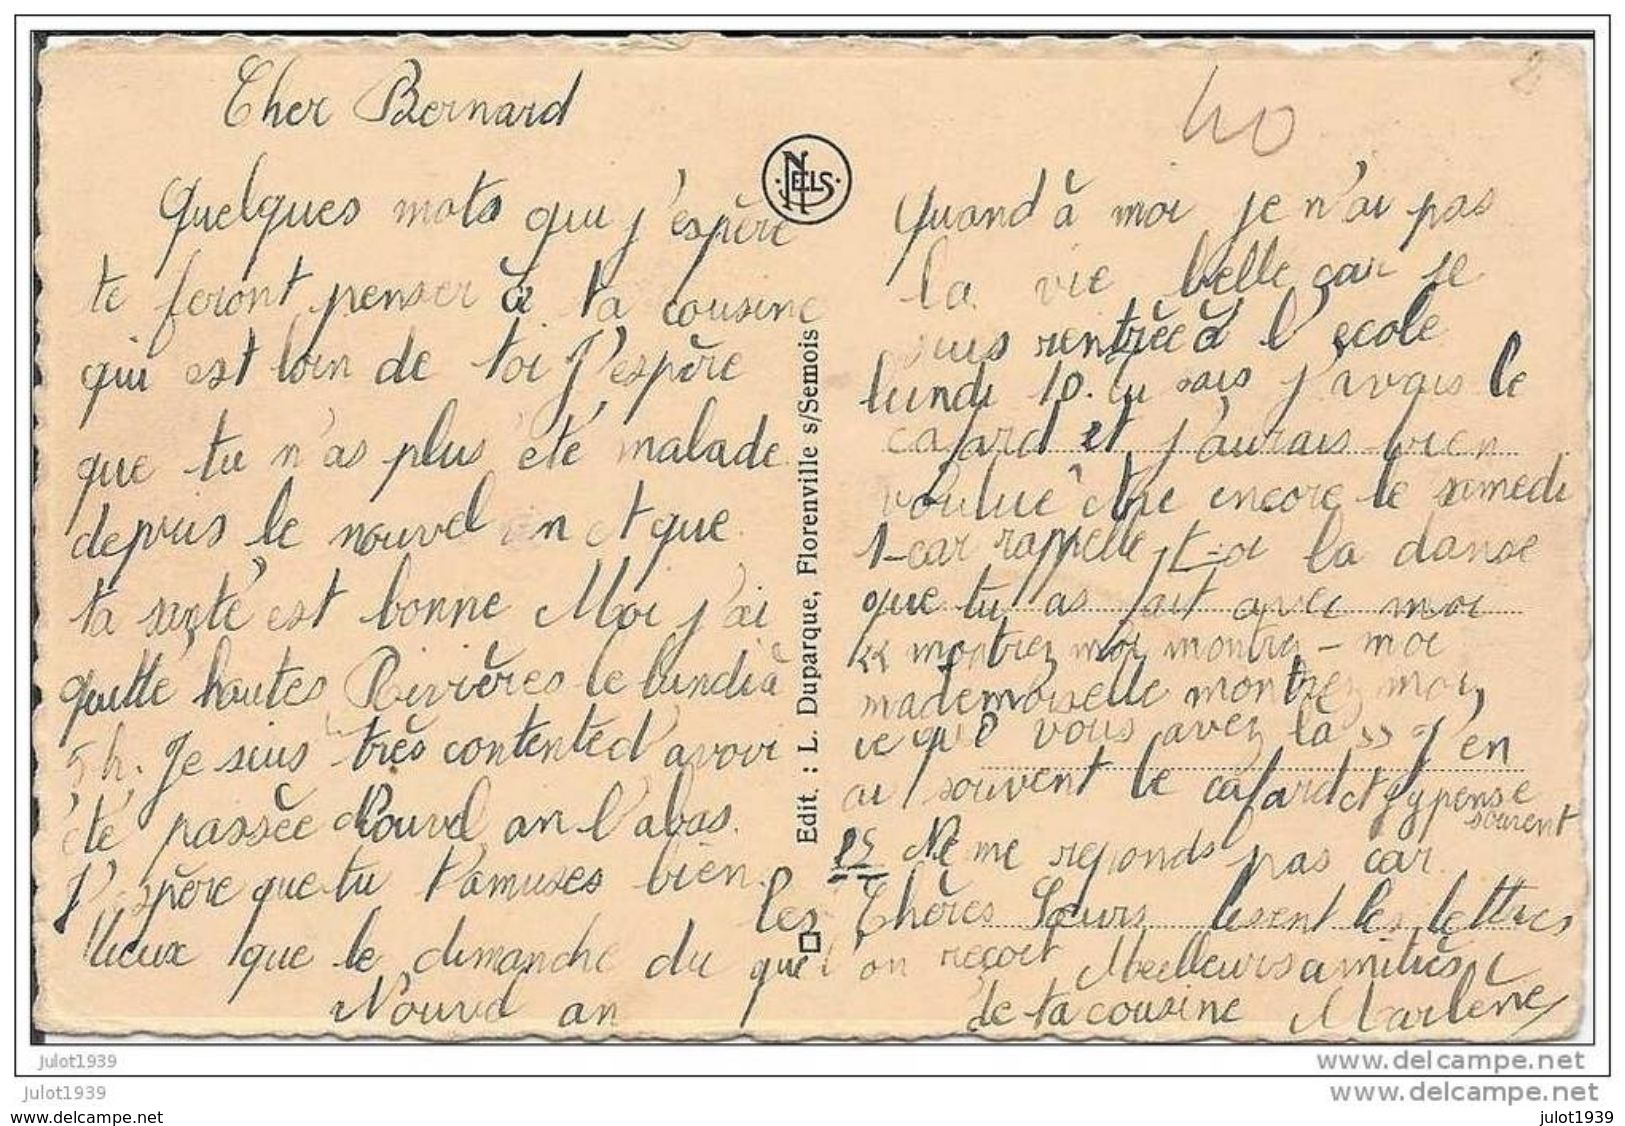 Cher Bernard
Quelques mots qui j'espère
te feront penser à ta cousine
qui est loin de toi J'espère
que tu n'as plus été malade
depuis le nouvel an et que
ta santé est bonne Moi j'ai
quitté hautes Rivières le lundi à
5 h. Je suis très contented'avoir
été passée Nouvel an l'abas.
J'espère que tu t'amuses bien.
Mieux que le dimanche du
Nouvel an
NELS
Edit. : L. Duparque, Florenville s/Semois
40
2
Quand à moi je n'ai pas
la vie belle car je
suis rentrée à l'école
lundi 10. tu sais j'avais le
cafard et j'aurais bien
voulue être encore le samedi
1-car rappelle-t-oi la danse
que tu as fait avec moi
« montrez moi montrez-moi
mademoiselle montrez moi,
ce que vous avez la » J'en
ai souvent le cafard et j'y pense
souvent
PS Ne me réponds pas car
les Chères Sœurs lisent les lettres
que l'on reçoit Meilleurs amitiés
de ta cousine Marlène
julot1939
www.delcampe.net
julot1939
www.delcampe.net
www.delcampe.net
julot1939